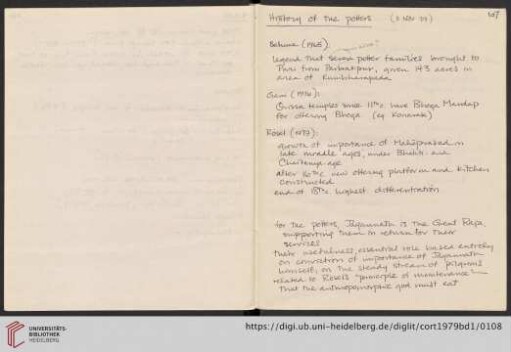 History of the potters (2 Nov 79) 107
Behura (1965)
legend that seven potter families brought to
Puri from Parbatipur, given 143 acres in
area of Kumbharapada
Geni (1976):
Orissa temples since 11th c have Bhoga Mandap
for offering Bhoga (eg Konarak)
Rösel (1979):
growth of importance of Mahaprasad in
late middle ages, under Bhakti and
Chaitanya age
after 16th c new offering platform and kitchen
constructed
end of 18th c highest differentiation
for the potters, Jagannath is the Great Raja,
supporting them in return for their
services
their usefulness, essential role based entirely
on conviction of importance of Jagannath
himself; on the steady stream of pilgrims
related to Rösel's "principle of maintenance" -
that the anthropomorphic god must eat
UNIVERSITÄTS-
BIBLIOTHEK
HEIDELBERG
https://digi.ub.uni-heidelberg.de/diglit/cort1979bd1/0108